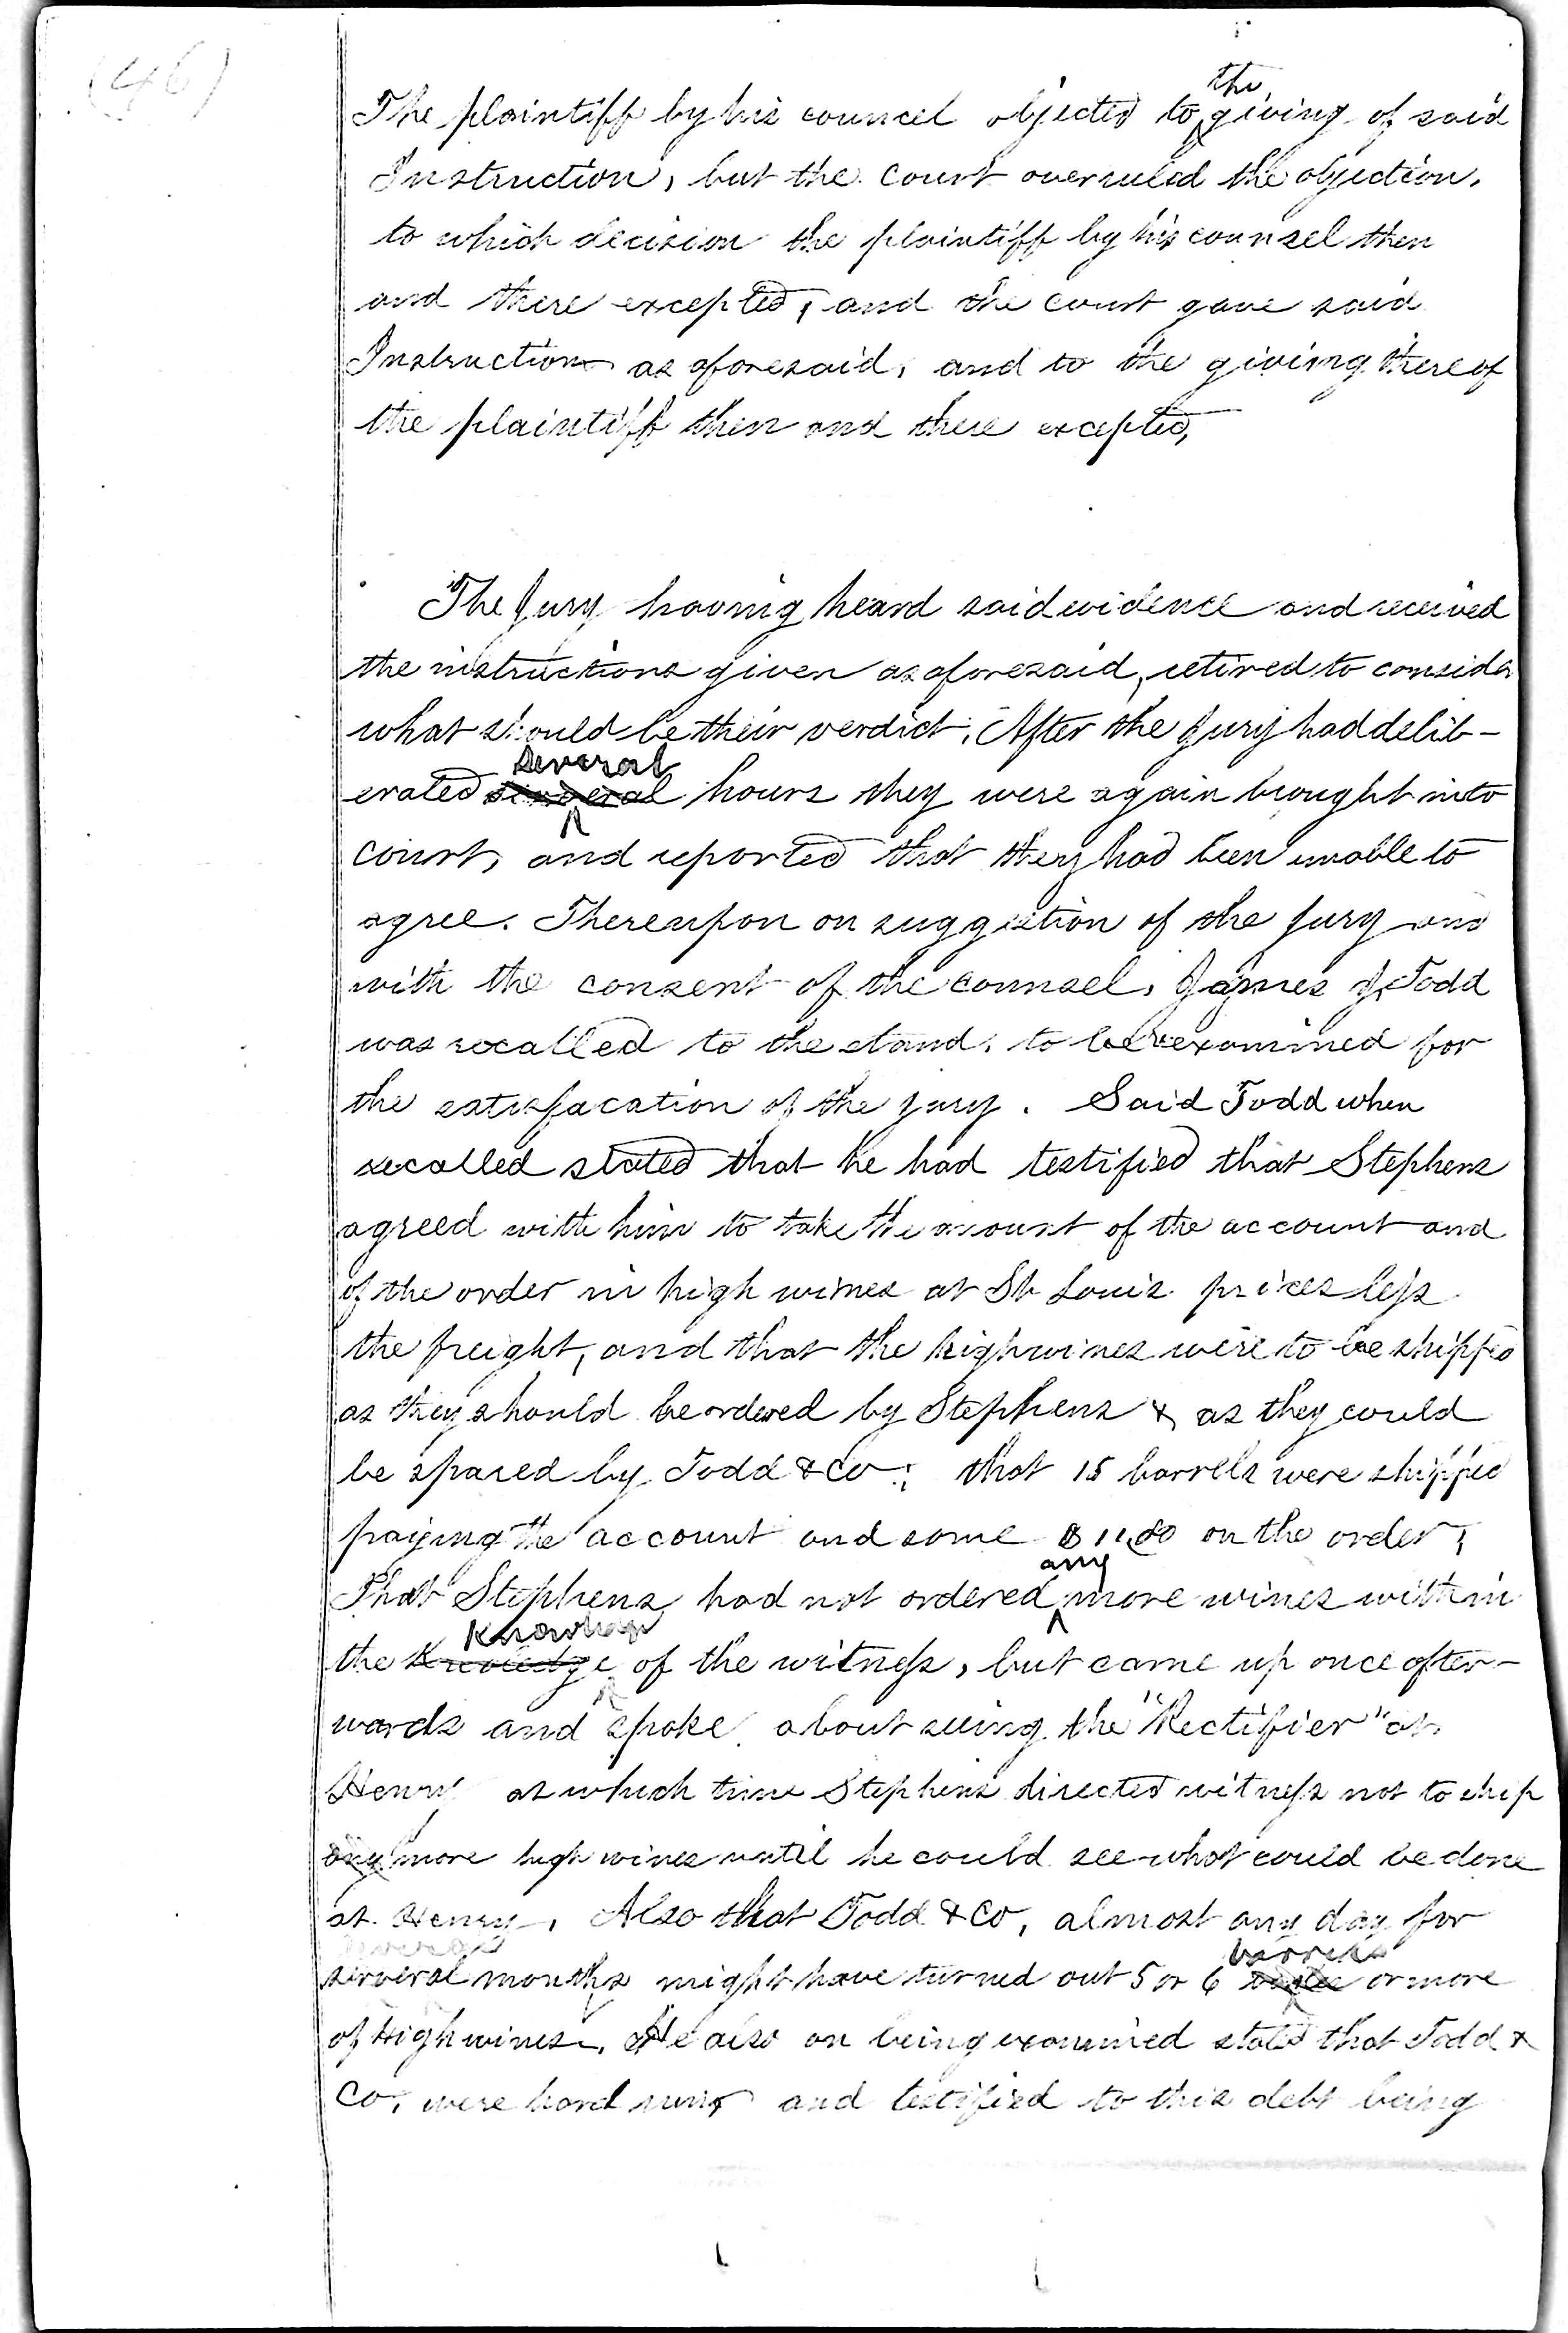 (46)
The plaintiff by his councel objected to the giving of said
Instruction, but the court overruled the objection.
to which decision the plaintiff by his counsel then
and there excepted, and the court gave said
Instruction as aforesaid, and to the giving thereof
the plaintiff then and there excepted,
The Jury having heard said evidence and received
the instructions given as aforesaid, retired to consider
what should be their verdict. After the Jury had delib-
erated several hours they were again brought into
court, and reported that they had been unable to
agree. Thereupon on suggestion of the jury and
with the consent of the counsel, James J. Todd
was recalled to the stand, to be reexamined for
the satisfacation of the jury. Said Todd when
recalled stated that he had testified that Stephens
agreed with him to take the amount of the account and
of the order in high wines at St Louis prices less
the freight, and that the highwines were to be shipped
as they should be ordered by Stephens & as they could
be spared by Todd & Co; that 15 barrels were shipped
paying the account and some on the order;
That Stephens had not ordered any more wines within
the Knowledge of the witness, but came up once after-
wards and spoke about seeing the "Rectifier" at
Henry at which time Stephens directed witness not to ship
any more high wines until he could see what could be done
at Henry. Also that Todd & Co, almost any day for
several months might have turned out 5 or 6 barrels or more
of Highwines. He also on being examined stated that Todd &
Co, were hard run, and testified to this debt being